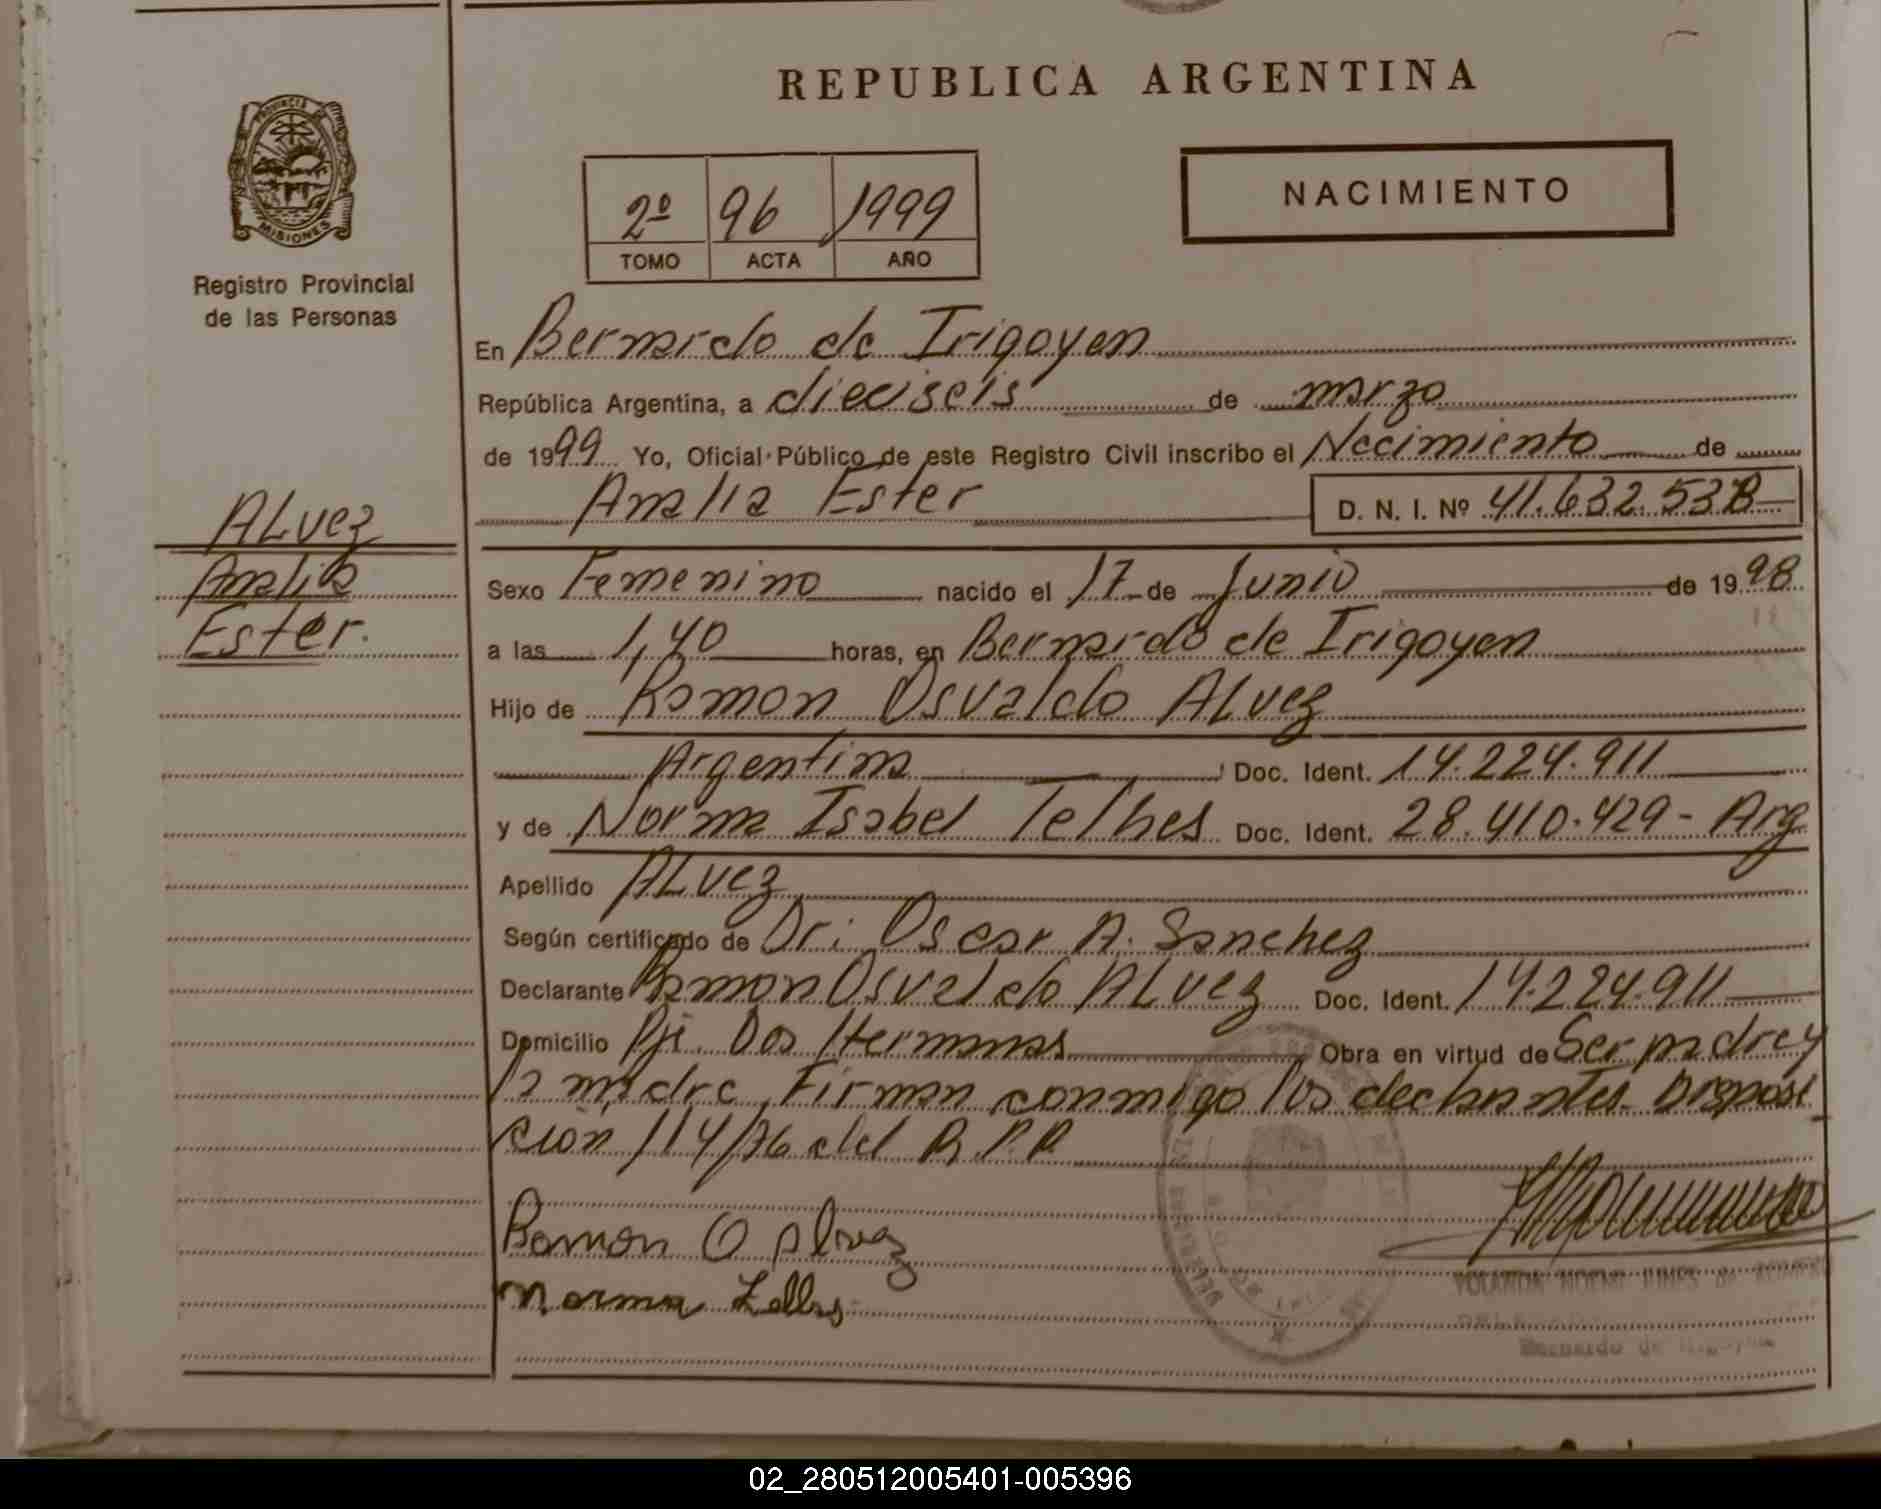 REPUBLICA ARGENTINA
PROVINCIA
MISIONES
Registro Provincial
de las Personas
NACIMIENTO
2º 96 1999
TOMO ACTA AÑO
En Bernardo de Irigoyen
República Argentina, a dieciseis de marzo
de 1999 Yo, Oficial Público de este Registro Civil inscribo el Nacimiento de
Analia Ester D. N. I. Nº 41.632.538
ALvez
Analia
Ester.
Sexo Femenino nacido el 17 de Junio de 1998
a las 1,40 horas, en Bernardo de Irigoyen
Hijo de Ramon Osvaldo ALvez
Argentina Doc. Ident. 14.224.911
y de Norma Isabel Telhes Doc. Ident. 28.410.429 - Arg
Apellido ALvez
Según certificado de Dr: Oscar A. Sanchez
Declarante Ramon Osvaldo ALvez Doc. Ident. 14.224.911
Domicilio Pje. Dos Hermanas Obra en virtud de Ser padre y
la madre Firman conmigo los declarantes. Disposi
ción 114/76 del R.P.P.
Ramon O Alvez
Norma
YOLANDA NOEMI de ROMERO
Bernardo de Irigoyen
02_280512005401-005396